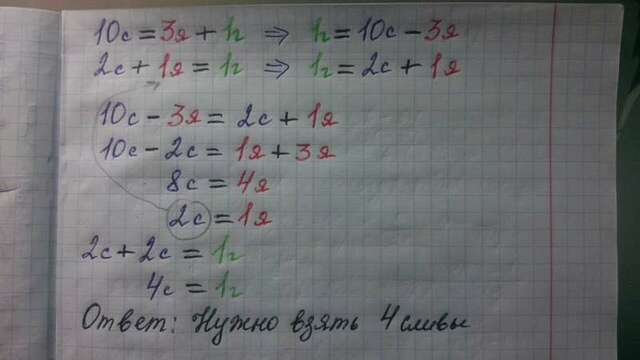 10с = 3я + 1г ⇒ 1г = 10с − 3я
2с + 1я = 1г ⇒ 1г = 2с + 1я
10с − 3я = 2с + 1я
10с − 2с = 1я + 3я
8с = 4я
2с = 1я
2с + 2с = 1г
4с = 1г
Ответ: Нужно взять 4 сливы